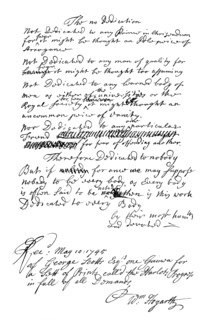 The no Dedication
Not Dedicated to any Prince in Christendom
for fear it might be thought an
Arrogance
Not Dedicated to any man of quality for
fear it might be thought too
Not Dedicated to any learned body of
men as either of the Universities or the
Royal Society for fear it might be thought an
uncommon piece of Vanity.
Nor Dedicated to any particular
Friend
for fear of offending another
Therefore Dedicated to nobody
But if for once we may suppose
nobody to be every body as Every body
is often said to be nobody then is this work
Dedicated to every Body
by their most humble
and devoted
Rec.d May 10 1745
of George Esq.r one Guinea for
a Sett of Prints called the Harlots Progress
in full of all Demands
W.m Hogarth